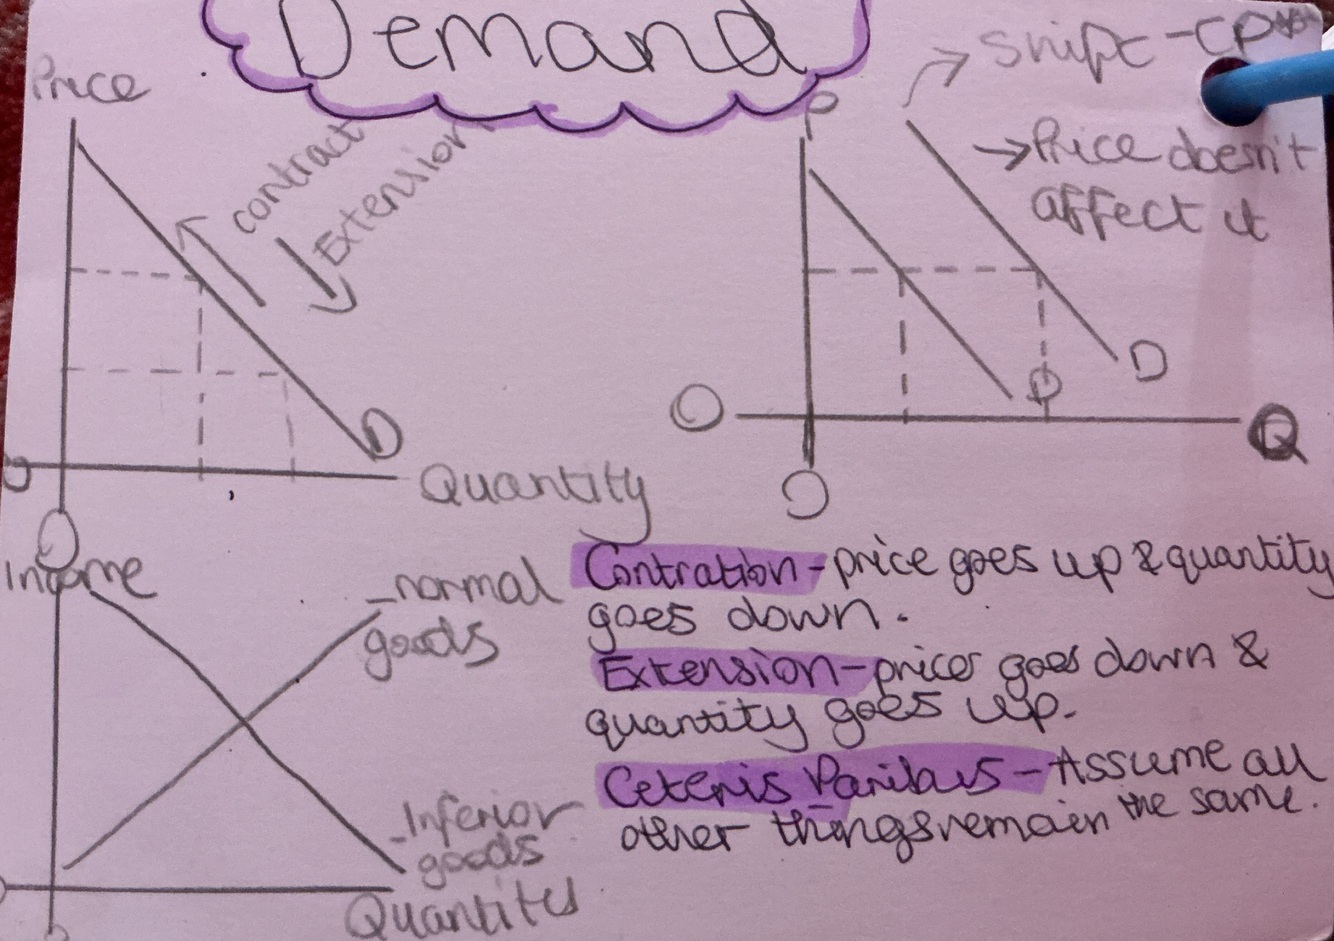 Demand
Price
contract
Extension
D
Quantity
O
O
P
Shift -
→ Price doesn't
affect it
D
D
O
Q
O
Income
-normal
goods
-Inferior
goods
Contration - price goes up & quantity
goes down.
Extension - price goes down &
quantity goes up.
Ceteris Paribus - Assume all
other things remain the same.